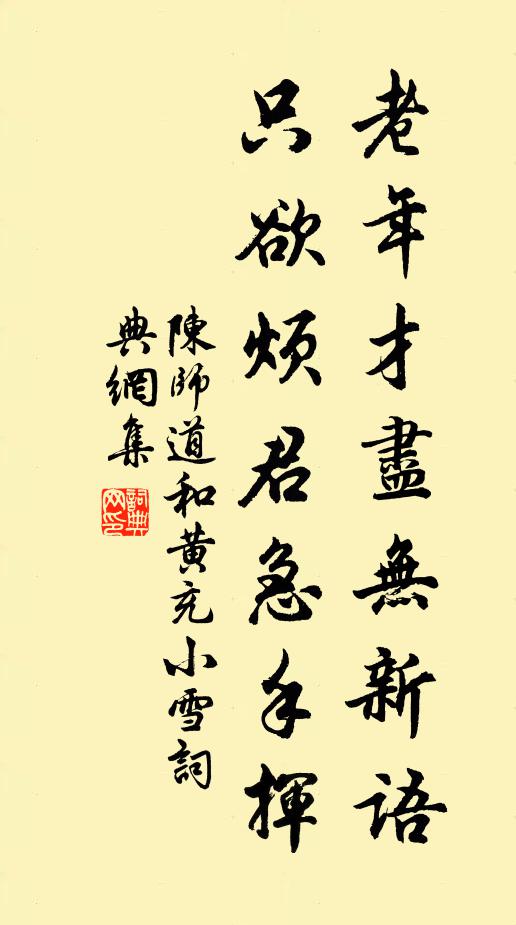 老年才盡無新語
只欲煩君急手揮
陳師道和黃充小雪詞
典網集
詞典網印